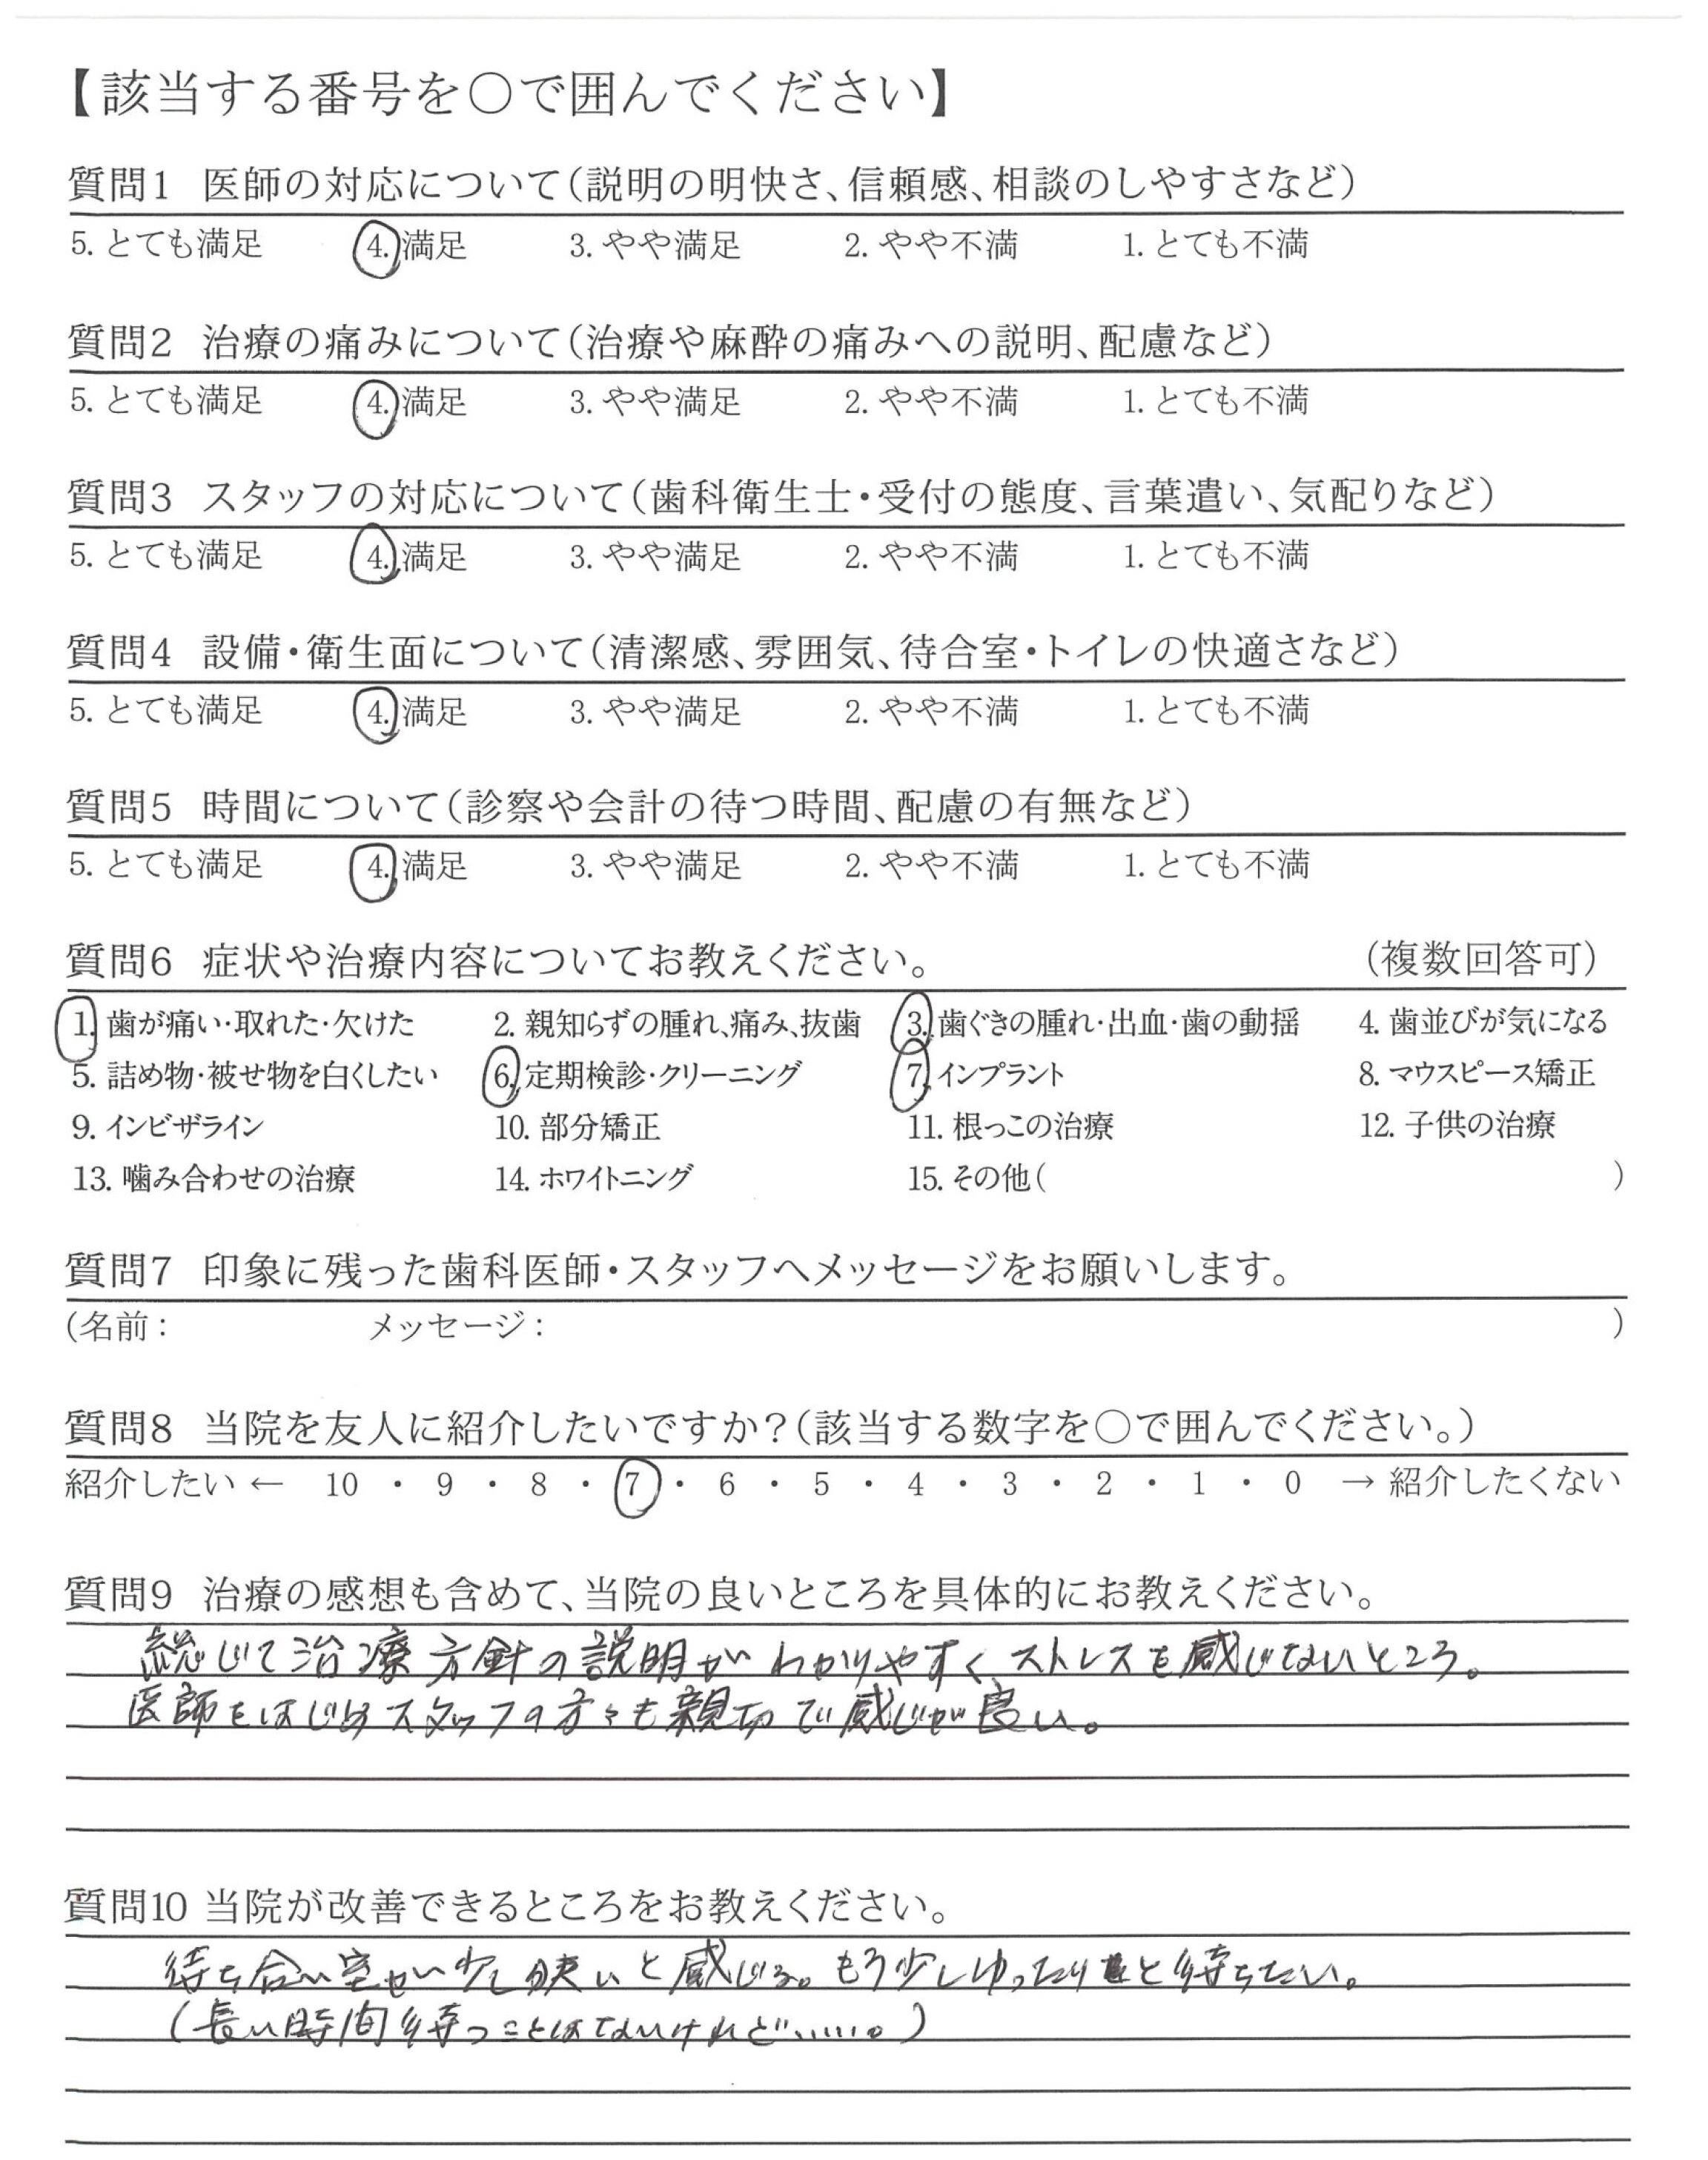 【該当する番号を〇で囲んでください】
質問1 医師の対応について(説明の明快さ、信頼感、相談のしやすさなど)
5. とても満足 4. 満足 3. やや満足 2. やや不満 1. とても不満
質問2 治療の痛みについて(治療や麻酔の痛みへの説明、配慮など)
5. とても満足 4. 満足 3. やや満足 2. やや不満 1. とても不満
質問3 スタッフの対応について(歯科衛生士・受付の態度、言葉遣い、気配りなど)
5. とても満足 4. 満足 3. やや満足 2. やや不満 1. とても不満
質問4 設備・衛生面について(清潔感、雰囲気、待合室・トイレの快適さなど)
5. とても満足 4. 満足 3. やや満足 2. やや不満 1. とても不満
質問5 時間について(診察や会計の待つ時間、配慮の有無など)
5. とても満足 4. 満足 3. やや満足 2. やや不満 1. とても不満
質問6 症状や治療内容についてお教えください。 (複数回答可)
1. 歯が痛い・取れた・欠けた 2. 親知らずの腫れ、痛み、抜歯 3. 歯ぐきの腫れ・出血・歯の動揺 4. 歯並びが気になる
5. 詰め物・被せ物を白くしたい 6. 定期検診・クリーニング 7. インプラント 8. マウスピース矯正
9. インビザライン 10. 部分矯正 11. 根っこの治療 12. 子供の治療
13. 噛み合わせの治療 14. ホワイトニング 15. その他( )
質問7 印象に残った歯科医師・スタッフへメッセージをお願いします。
(名前: メッセージ: )
質問8 当院を友人に紹介したいですか?(該当する数字を〇で囲んでください。)
紹介したい ← 10 ・ 9 ・ 8 ・ 7 ・ 6 ・ 5 ・ 4 ・ 3 ・ 2 ・ 1 ・ 0 → 紹介したくない
質問9 治療の感想も含めて、当院の良いところを具体的にお教えください。
総じて治療方針の説明がわかりやすく、ストレスを感じないところ。
医師をはじめスタッフの方々も親切で感じが良い。
質問10 当院が改善できるところをお教えください。
待ち合い室が少し狭いと感じる。もう少しゆったりと待ちたい。
(長い時間待つことはないけれど……。)